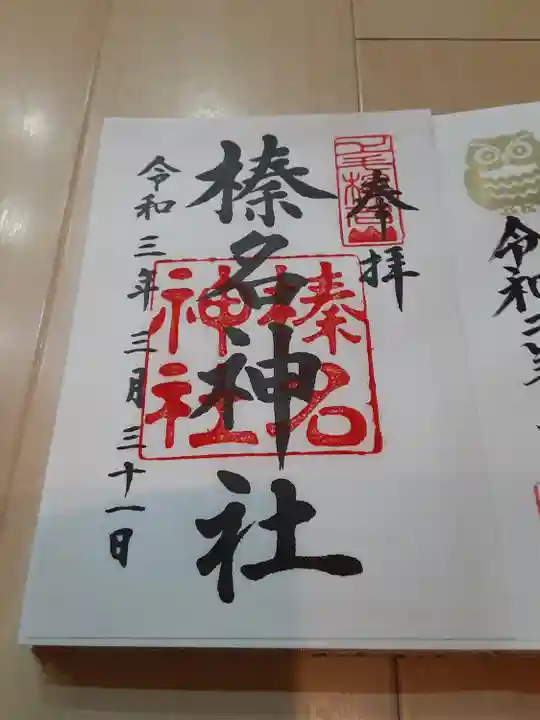 令和二年
奉拝
榛名神社
榛名
神社
令和三年三月三十一日